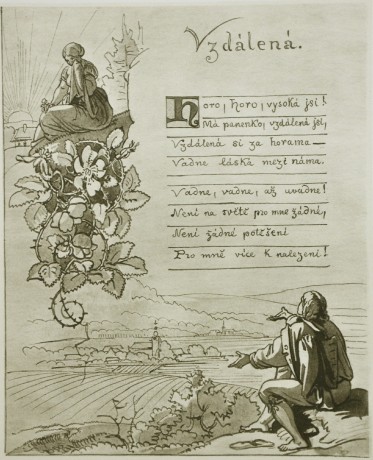 Vzdálená.
Horo, horo, vysoká jsi!
Má panenko, vzdálená jsi,
Vzdálená si za horama —
Vadne láska mezi náma.
Vadne, vadne, až uvadne!
Není na světě pro mne žádné,
Není žádné potěšení
Pro mně více k nalezení!